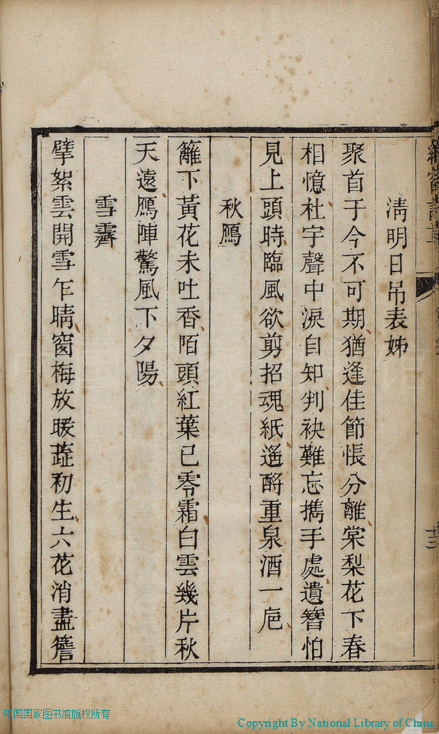 清明日吊表姊
聚首于今不可期猶逢佳節悵分離棠梨花下春
相憶杜宇聲中淚自知判袂難忘攜手處遺簪怕
見上頭時臨風欲剪招魂紙遙酹重泉酒一巵
秋鴈
籬下黃花未吐香陌頭紅葉已零霜白雲幾片秋
天遠鴈陣驚風下夕陽
雪霽
擘絮雲開雪乍晴窗梅放暖蕋初生六花消盡簷
中国国家图书馆版权所有
Copyright By National Library of China